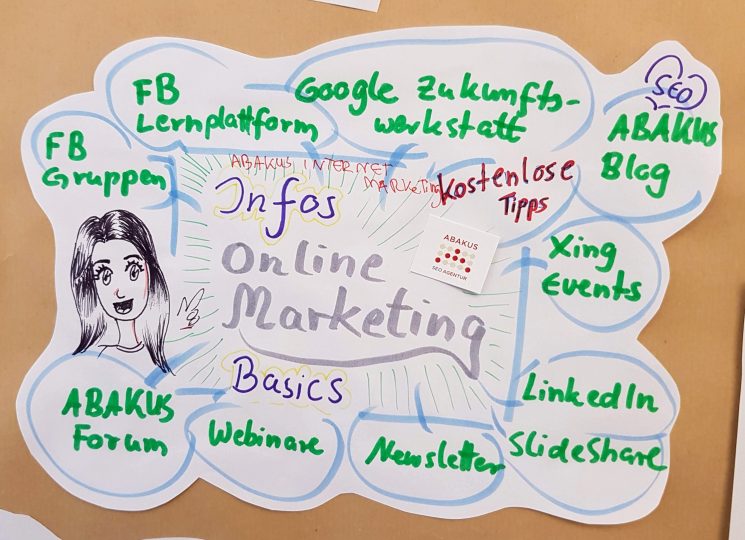 FB
Lernplattform
Google Zukunfts-
werkstatt
SEO
ABAKUS
Blog
FB
Gruppen
ABAKUS INTERNET
MARKETING
Kostenlose
Tipps
Infos
Online
Marketing
Basics
ABAKUS
SEO AGENTUR
Xing
Events
LinkedIn
SlideShare
Newsletter
Webinare
ABAKUS
Forum